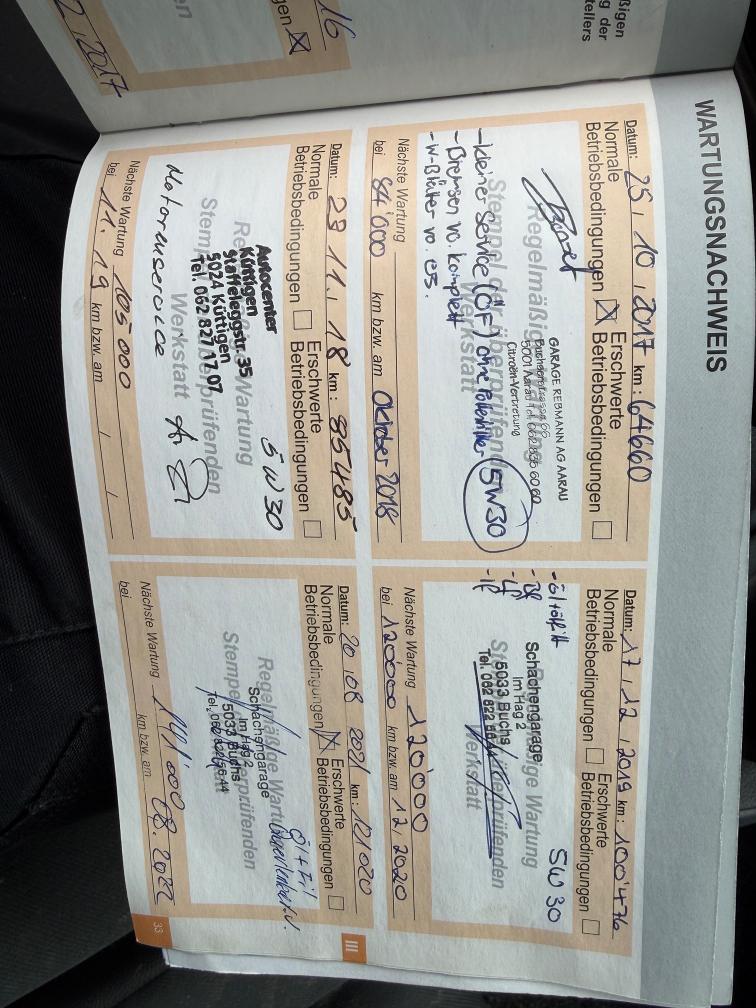 WARTUNGSNACHWEIS
Datum: 25 / 10 / 2017 km: 64660
Normale Betriebsbedingungen ☒ Erschwerte Betriebsbedingungen ☐
GARAGE REBMANN AG AARAU
5001 Aarau
Citroën-Vertretung
Regelmäßige Wartung
Stempel der überprüfenden
Werkstatt
- kleiner Service (ÖF) ohne 5W30
- Bremsen vo. komplett
- W-Blätter vo. es.
Nächste Wartung
bei 84'000 km bzw. am Oktober 2018
Datum: 23 11. / 18 km: 85485
Normale Betriebsbedingungen ☐ Erschwerte Betriebsbedingungen ☐
5W30
Regelmäßige Wartung
Autocenter
Küttigen
Staffeleggstr. 35
5024 Küttigen
Tel. 062 827 17 07
Stempel der überprüfenden
Werkstatt
Motorenservice
Nächste Wartung 105000
bei 11. 19 km bzw. am / /
Datum: 17 / 12 / 2019 km: 100'476
Normale Betriebsbedingungen ☐ Erschwerte Betriebsbedingungen ☐
5W30
Regelmäßige Wartung
Schachengarage
Im Hag 2
5033 Buchs
Stempel der überprüfenden
Werkstatt
Nächste Wartung 120'000
bei 120'000 km bzw. am 12 / 2020
Datum: 20 / 08 2021 km: 121020
Normale Betriebsbedingungen ☒ Erschwerte Betriebsbedingungen ☐
Regelmäßige Wartung
Schachengarage
Im Hag 2
5033 Buchs
Stempel der überprüfenden
Nächste Wartung 141'000 08. 2022
bei km bzw. am
III
33
16
2017